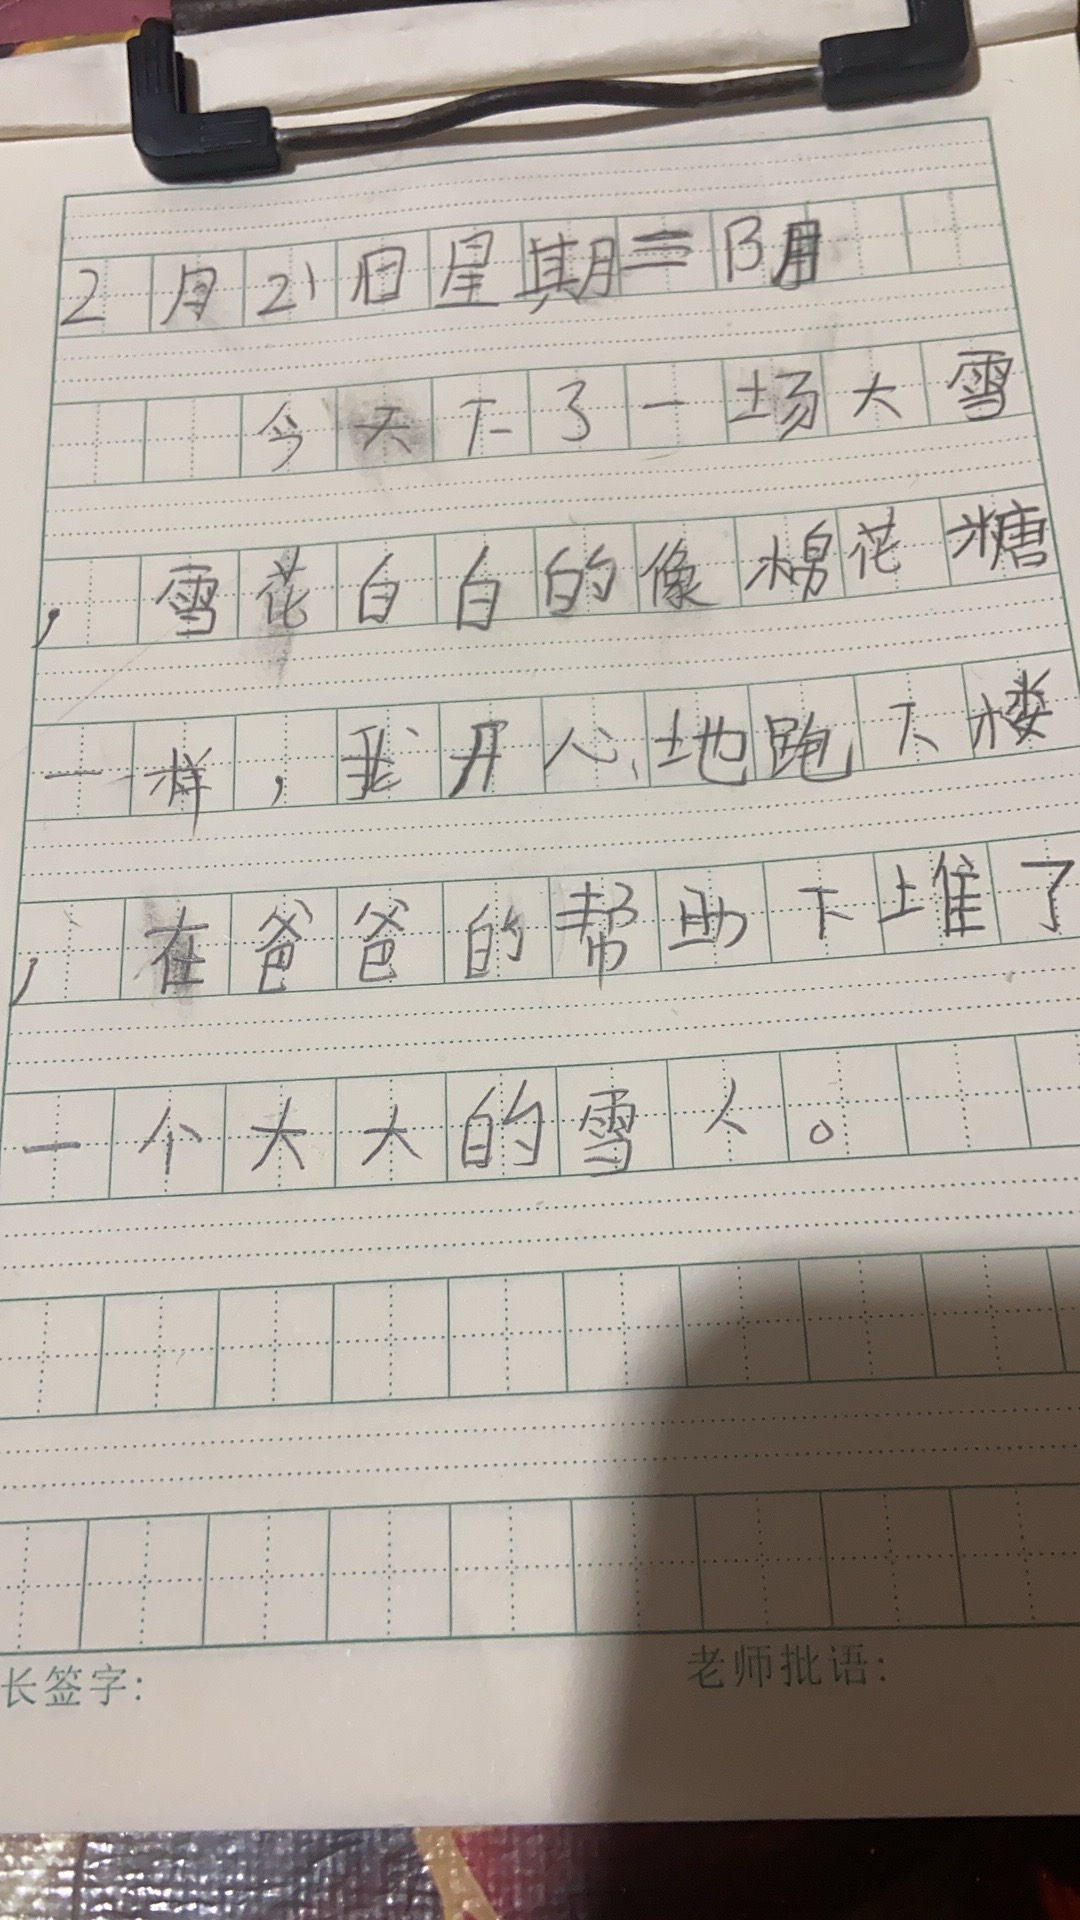 2月21日星期二阴
今天下了一场大雪
，雪花白白的像棉花糖
一样，我开心地跑下楼
，在爸爸的帮助下堆了
一个大大的雪人。
长签字：
老师批语：